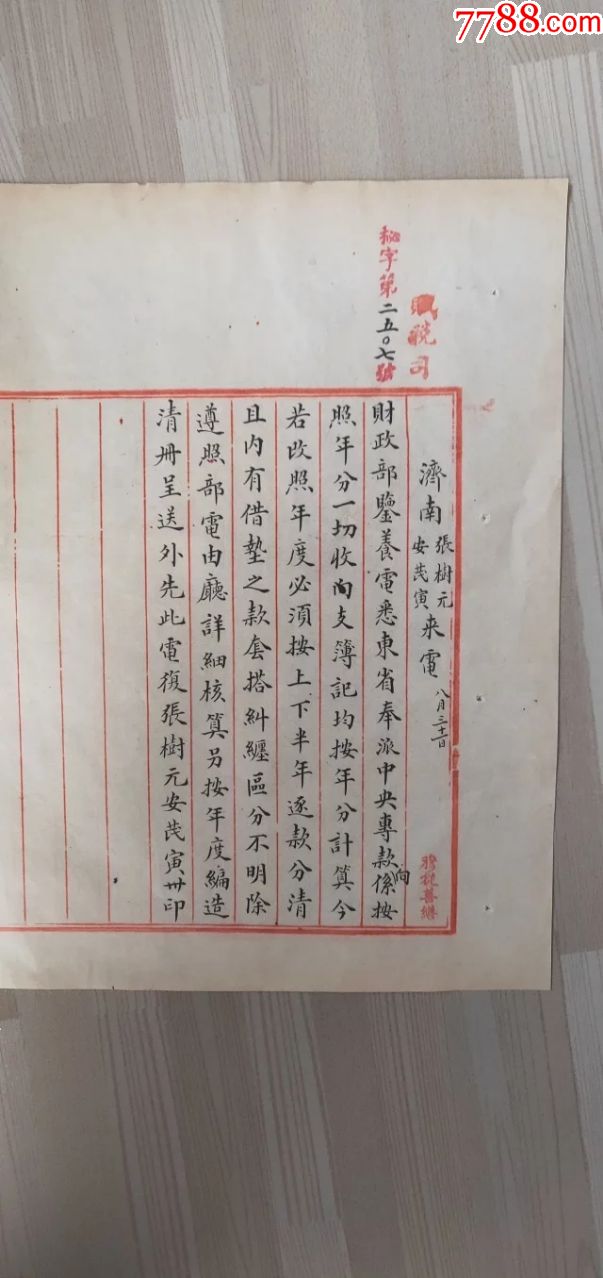 7788.com
賦税司
秘字第二五〇七號
濟南張樹元安茂寅来電八月三十一日
財政部鑒養電悉東省奉派中央專款向係按
照年分一切收支簿記均按年分計算今
若改照年度必須按上下半年逐款分清
且内有借墊之款套搭糾纏區分不明除
遵照部電由廳詳細核算另按年度編造
清冊呈送外先此電復張樹元安茂寅卅印